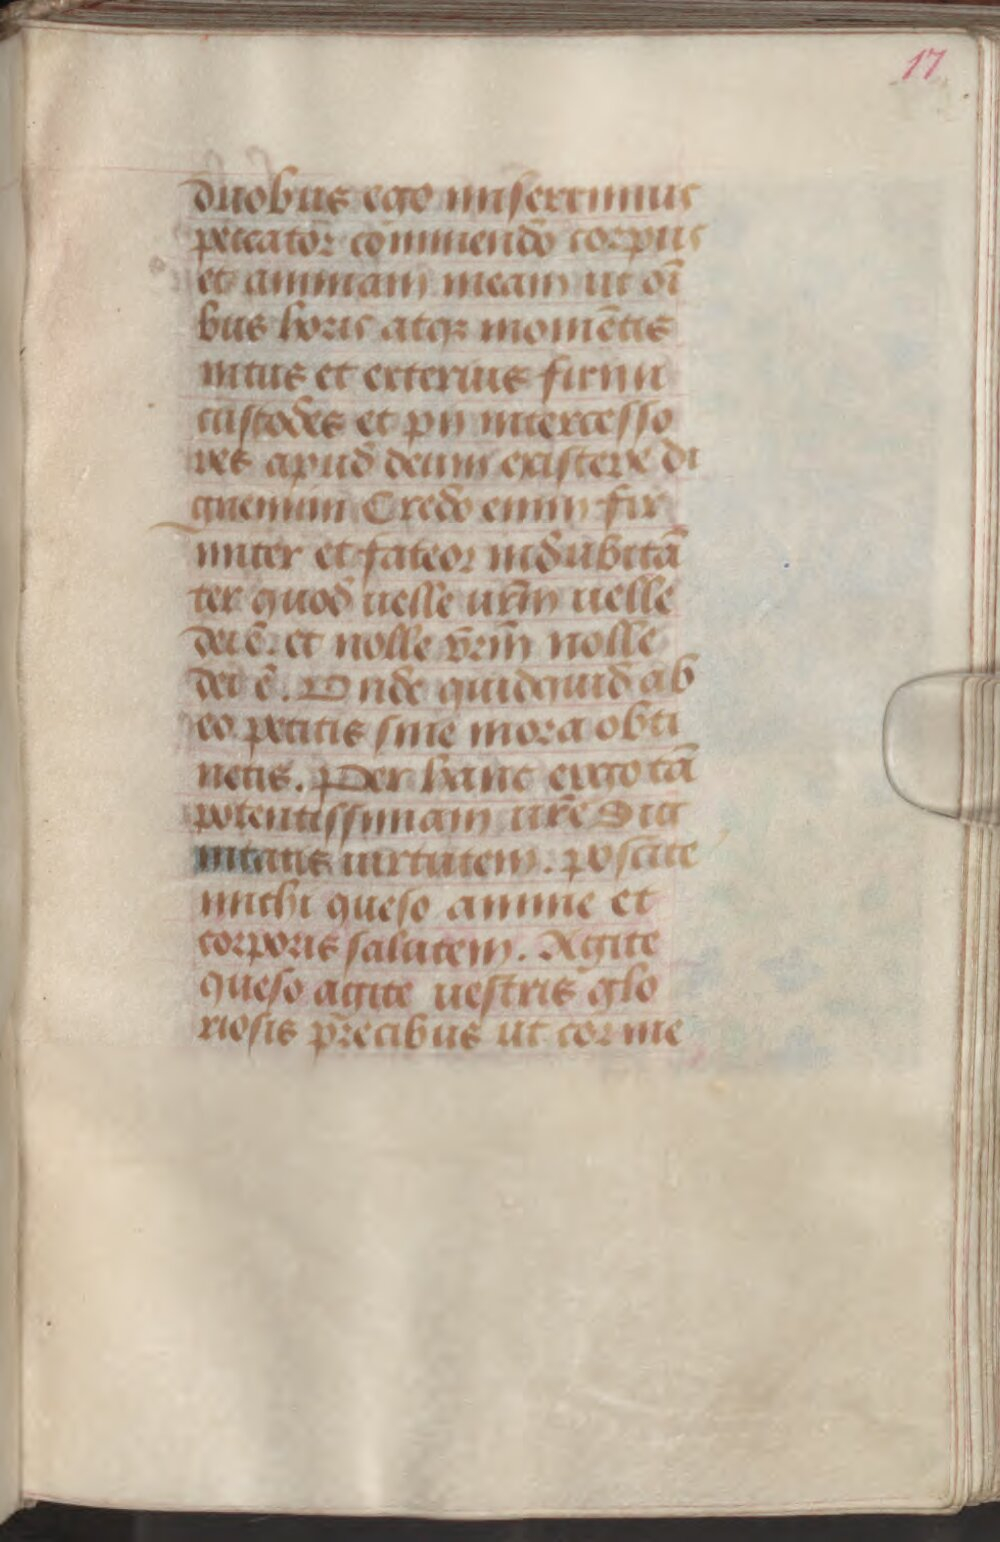 17
duobus ego miserrimus
peccator cōmmendo corpus
et animam meam ut oī
bus horis atqꝫ momētis
intus et exterius firmi
custodes et pii intercesso
res apud deum existere di
gnemini Credo enim fir
miter et fateor indubitā
ter quod uelle ur̄m uelle
dei ē. et nolle vr̄m nolle
dei ē. Unde quidquid ab
eo petitis sine mora obti
netis. Per hanc ergo tā
potentissimam ur̄e dig
nitatis uirtutem. poscite
michi queso anime et
corporis salutem. Agite
queso agite uestris glo
riosis precibus ut cor me